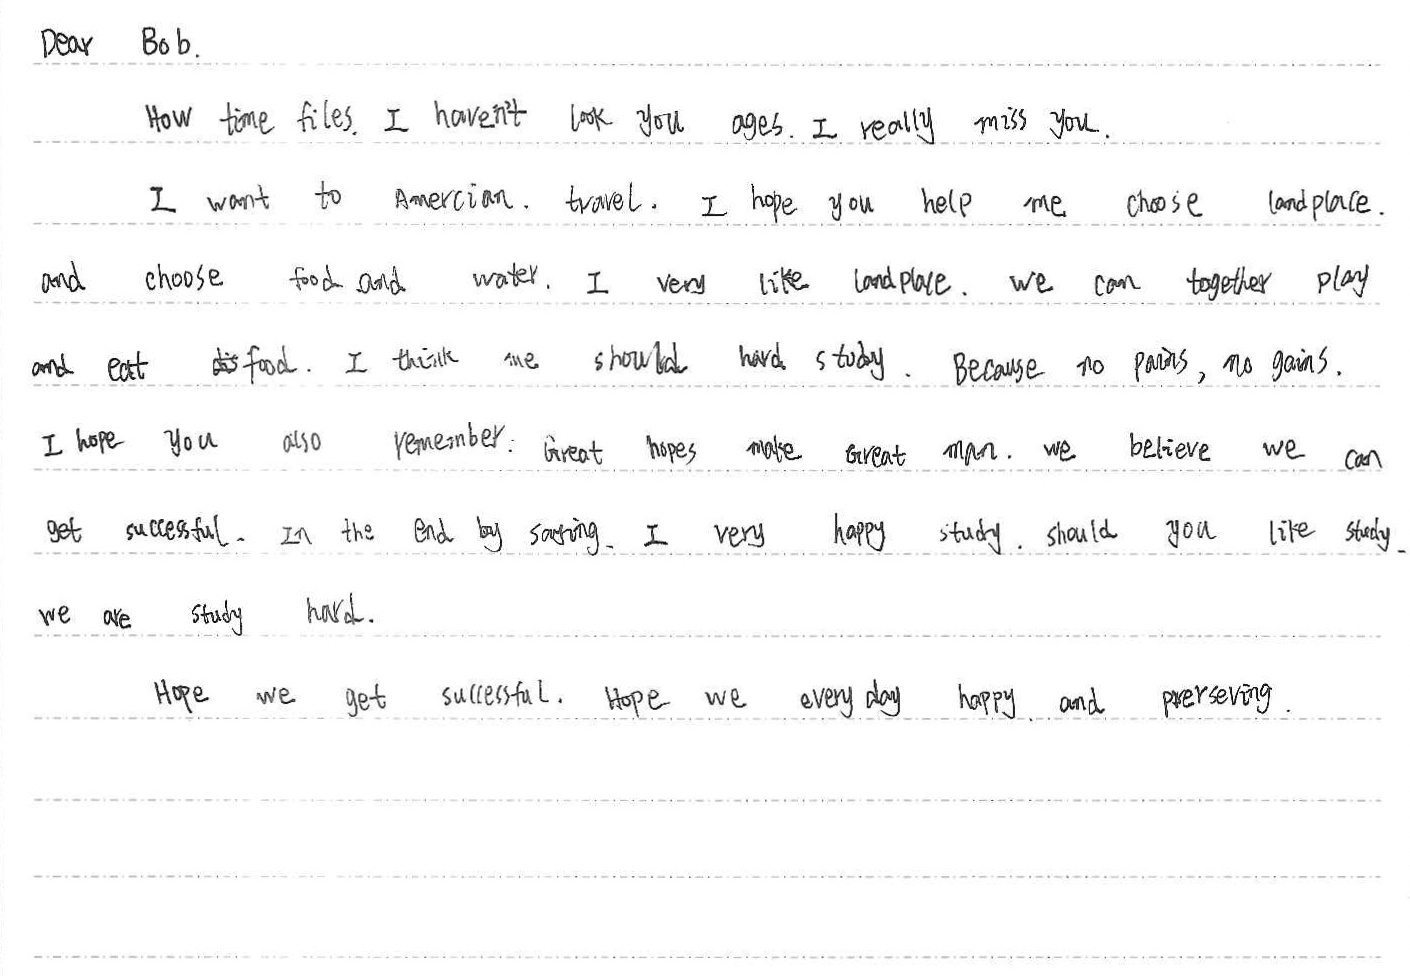 Dear Bob.
How time files. I haven't look you ages. I really miss you.
I want to Amercian. travel. I hope you help me choose landplace.
and choose food and water. I very like landplace. we can together play
and eat food. I think me should hard study. Because no pains, no gains.
I hope you also remember: Great hopes make Great man. we believe we can
get successful. In the end by saying. I very happy study. should you like study.
we are study hard.
Hope we get successful. Hope we every day happy and prerseving.